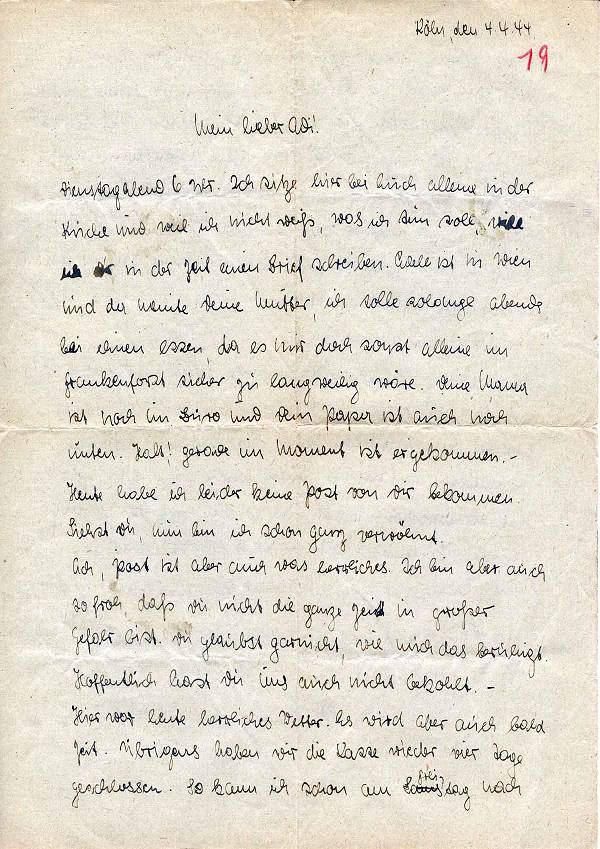 Köln, den 4.4.44
19
Mein lieber Adi!
Dienstagabend 6 Uhr. Ich sitze hier bei Euch alleine in der
Küche und weil ich nicht weiß, was ich tun soll, will
ich in der Zeit einen Brief schreiben. ist in Wien
und da meinte Deine Mutter, ich solle solange abends
bei ihnen essen, da es mir doch sonst alleine im
Frankenforst sicher zu langweilig wäre. Deine Mama
ist noch im Büro und Dein Papa ist auch noch
unten. Halt! gerade im Moment ist er gekommen. –
Heute habe ich leider keine Post von Dir bekommen.
Siehst Du, nun bin ich schon ganz verwöhnt.
Adi, Post ist aber auch was herrliches. Ich bin aber auch
so froh, daß Du nicht die ganze Zeit in großer
Gefahr bist. Du glaubst garnicht, wie mich das beruhigt.
Hoffentlich hast Du uns auch nicht bekohlt. –
Hier war heute herrliches Wetter. Es wird aber auch bald
Zeit. Übrigens haben wir die Kasse wieder vier Tage
geschlossen. So kann ich schon am freitag nach